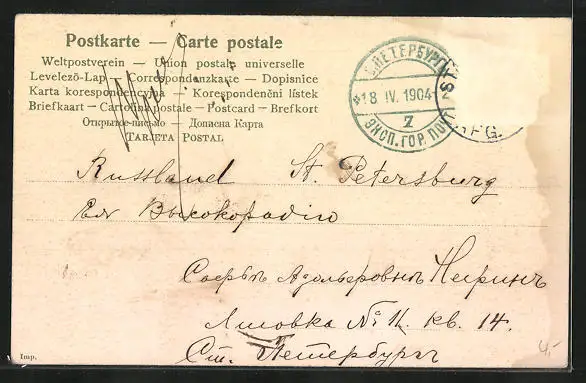 Postkarte — Carte postale
Weltpostverein — Union postale universelle
Levelező-Lap — Correspondenzkarte — Dopisnice
Karta korespondencyjna — Korespondenční lístek
Briefkaart — Cartolina postale — Postcard — Brefkort
Открытое письмо — Дописна Карта
TARJETA POSTAL
С.ПЕТЕРБУРГЪ
18 IV. 1904
7
ЭКСП. ГОР. ПОЧТ.
Russland St. Petersburg
Ея Высокородію
Адольфовнѣ
№ 11. кв. 14.
Ст. Петербургъ
Imp.
4,-